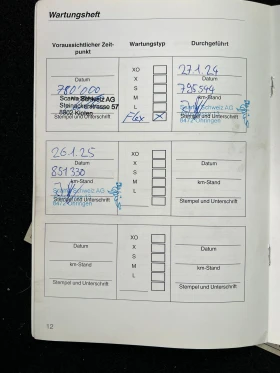 Wartungsheft
Voraussichtlicher Zeit-
punkt
Wartungstyp
Durchgeführt
780'000
Datum
Scania Schweiz AG
Steinackerstrasse 57
8802 Kloten
Stempel und Unterschrift
XO
X
S
M
L
Flex X
27.1.24
Datum
795544
km-Stand
Scania Schweiz AG
8472 Ohringen
Stempel und Unterschrift
26.1.25
Datum
851330
km-Stand
Scania Schweiz AG
8472 Ohringen
Stempel und Unterschrift
XO
X
S
M
L
Datum
km-Stand
Stempel und Unterschrift
Datum
km-Stand
Stempel und Unterschrift
XO
X
S
M
L
Datum
km-Stand
Stempel und Unterschrift
12